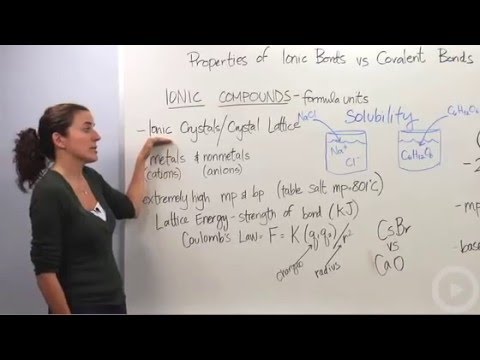 Properties of Ionic Bonds vs Covalent Bonds
IONIC COMPOUNDS - formula units
- Ionic Crystals/Crystal Lattice
metals & nonmetals
(cations) (anions)
extremely high mp & bp (table salt mp=801°C)
Lattice Energy - strength of bond (KJ)
Coulomb's Law = F = K (q₁q₂)/r²
charges
radius
Solubility
NaCl
Na⁺
Cl⁻
C₆H₁₂O₆
C₆H₁₂O₆
CsBr
vs
CaO
- mp
- base